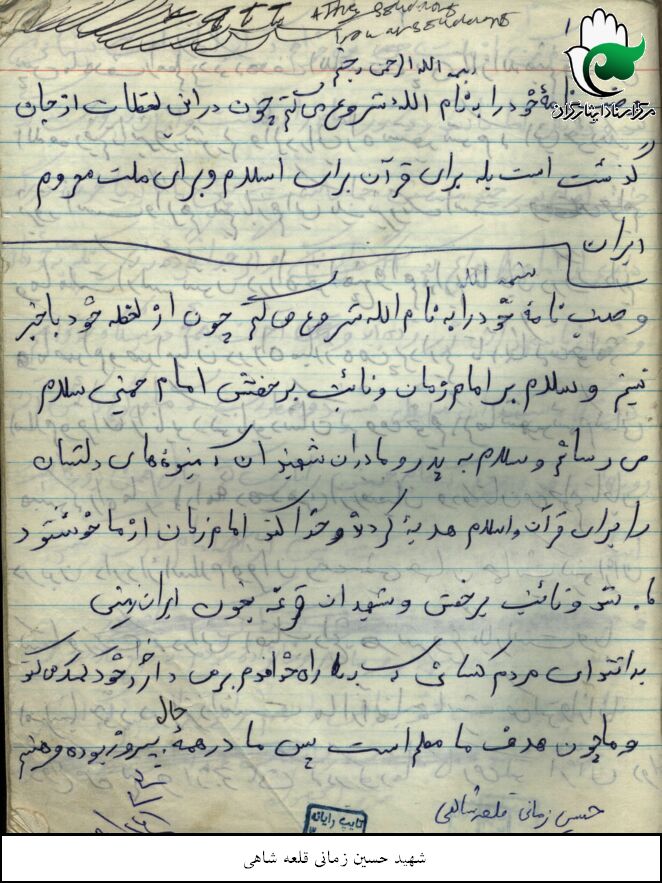 بسم الله الرحمن رحیم
نامهٔ خود را به نام الله شروع می کنم چون در این لحظات از جان
گذشت است بله برای قرآن برای اسلام و برای ملت محروم
ایران
بسمه الله
وصیت نامهٔ خود را به نام الله شروع می کنم چون از لحظه خود باخبر
نیم و سلام بر امام زمان و نائب برحقش امام خمینی سلام
می رسانم و سلام به پدر و مادران شهیدان که میوه های دلشان
را برای قرآن و اسلام هدیه کردند و خدا کند امام زمان از ما خوشنود
با. شد و نائب برحقش و شهیدان بخون ایران
بدانند ای مردم کسانی که به راه خدا قدم برمی دارد خدا کمکش می کند
و ما چون هدف ما معلم است پس ما در همهٔ حال پیروز بوده و هستیم
حسین زمانی قلعه شاهی
تایپ رایانه
مرکز اسناد ایثارگران
شهید حسین زمانی قلعه شاهی